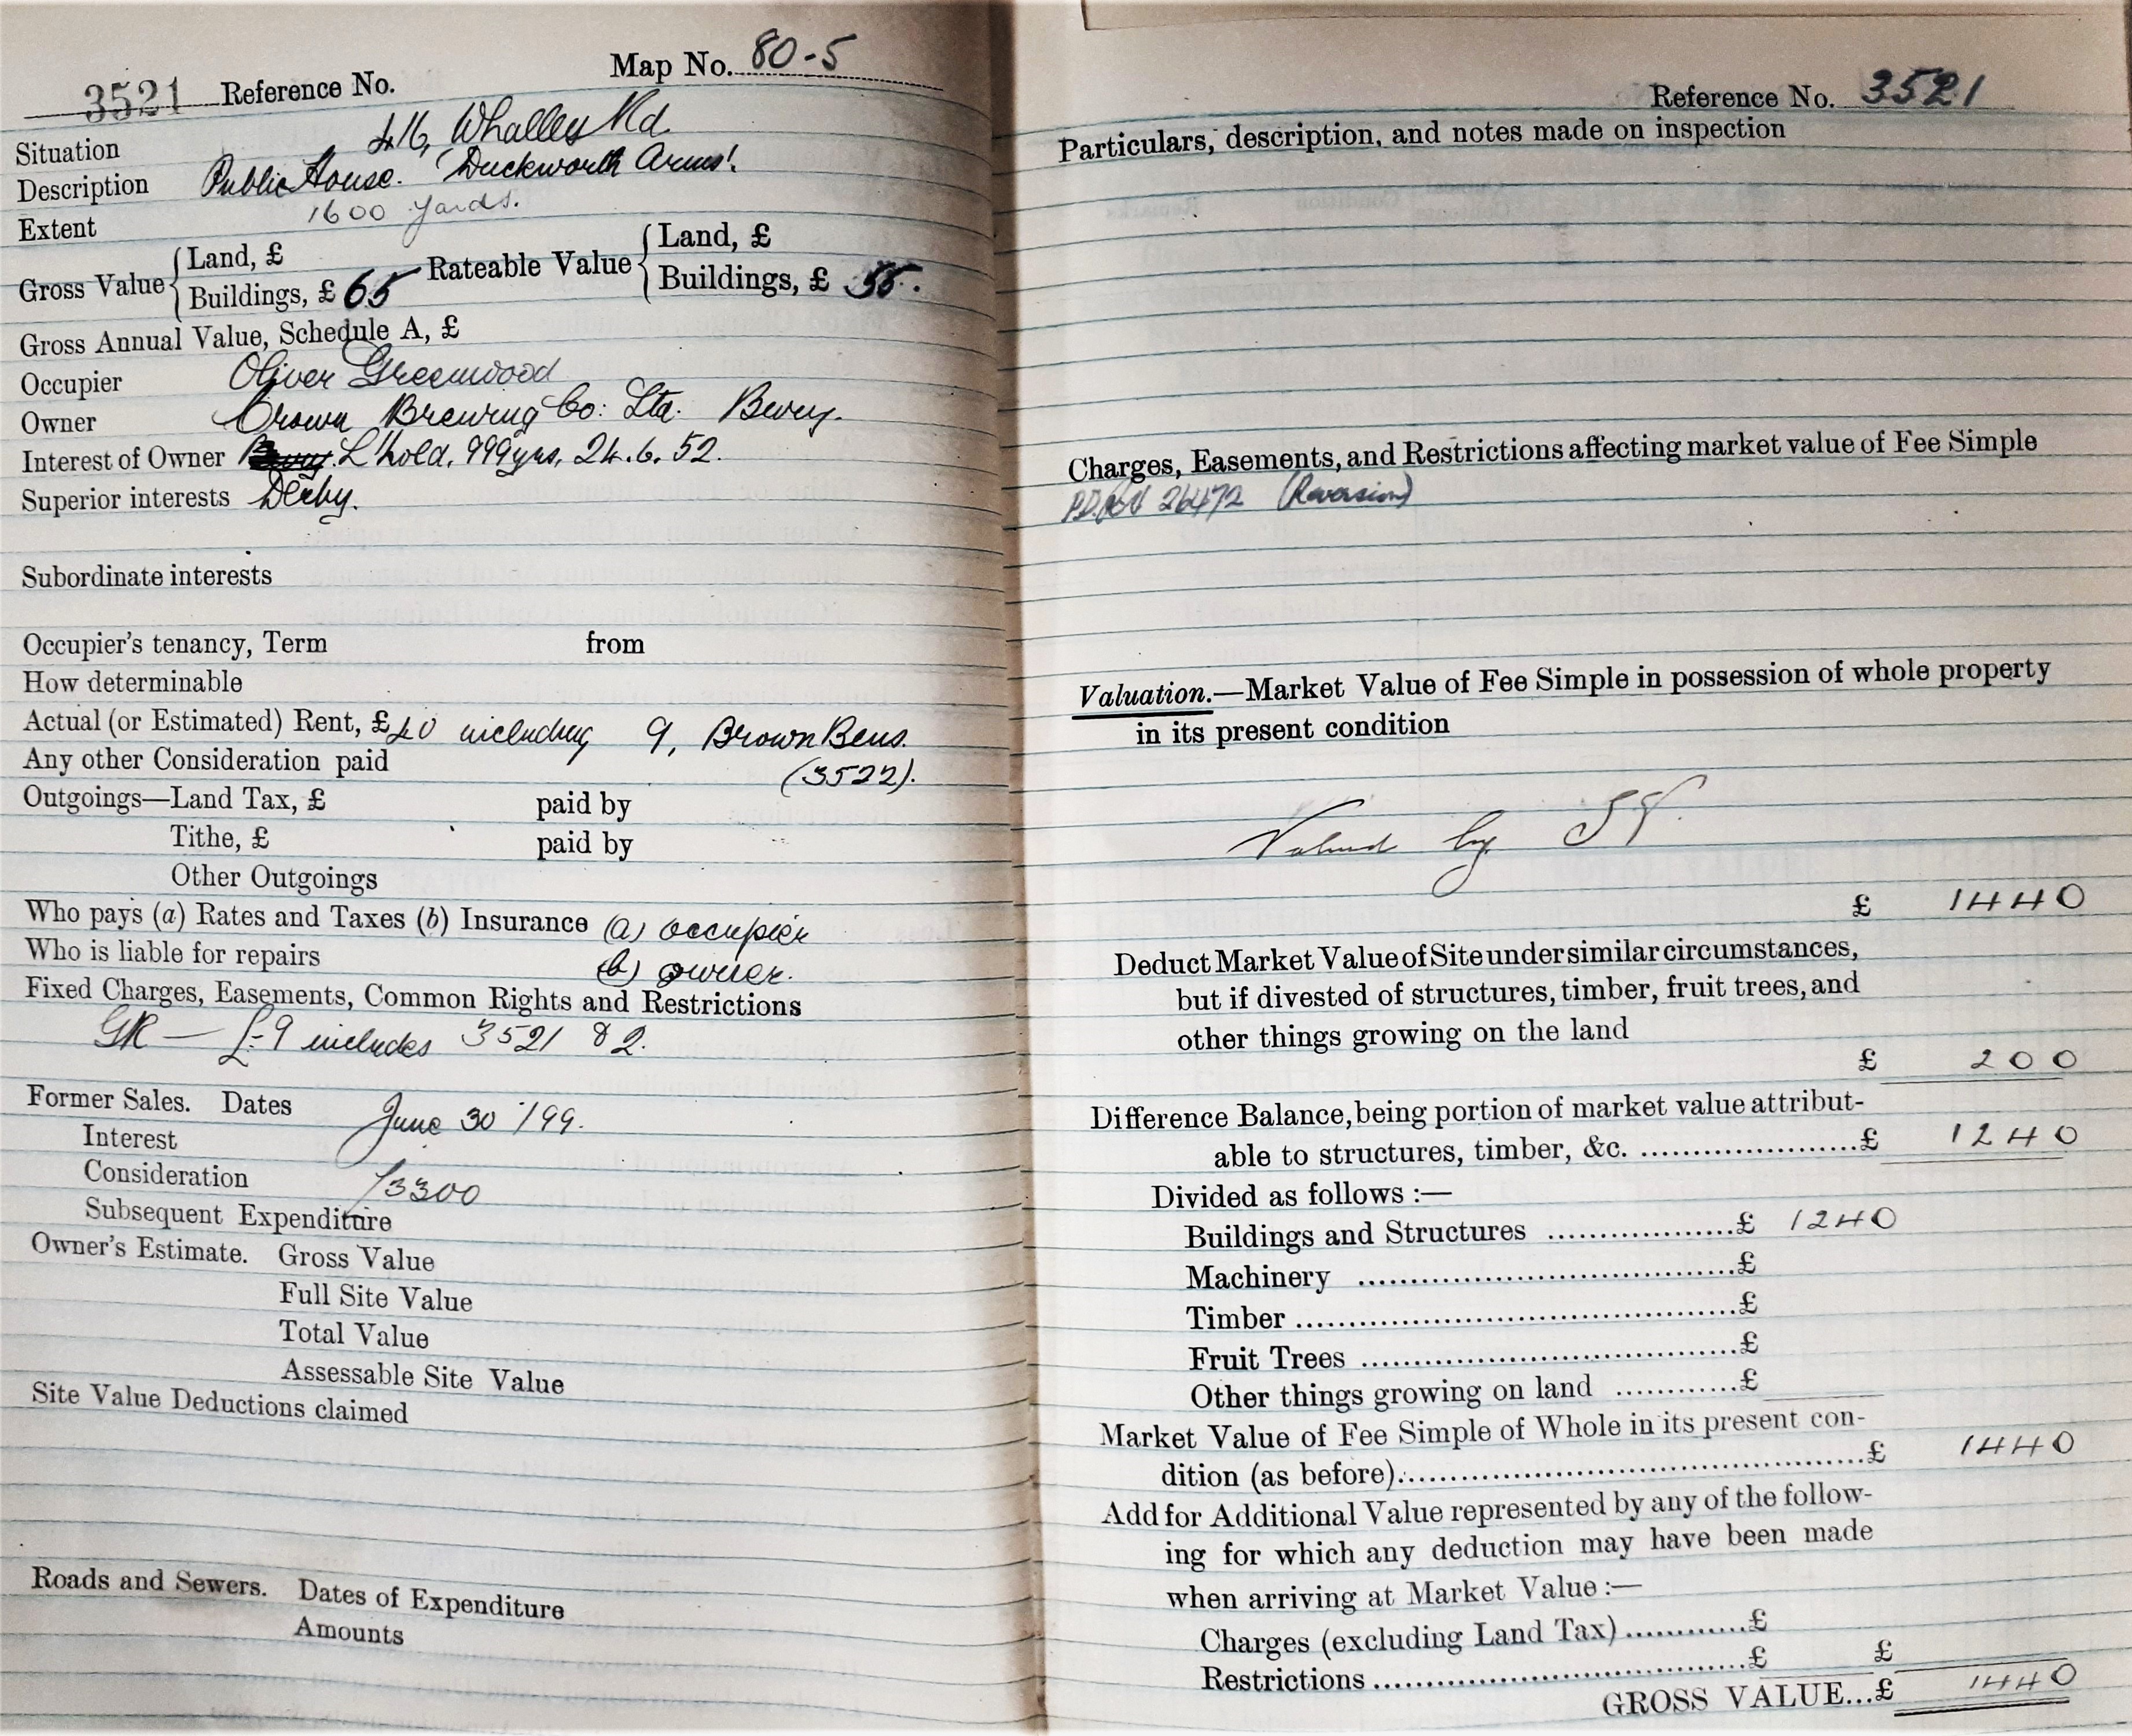 3521 Reference No. Map No. 80-5
Situation 416, Whalley Rd.
Description Public House. 'Duckworth Arms'.
Extent 1600 yards.
Gross Value { Land, £
Buildings, £ 65 Rateable Value { Land, £
Buildings, £ 55.
Gross Annual Value, Schedule A, £
Occupier Oliver Greenwood
Owner Crown Brewing Co: Ltd. Bury.
Interest of Owner L'hold, 999yrs, 24.6.52.
Superior interests Derby.
Subordinate interests
Occupier's tenancy, Term from
How determinable
Actual (or Estimated) Rent, £40 including 9, Brown Bens.
Any other Consideration paid (3522).
Outgoings—Land Tax, £ paid by
Tithe, £ paid by
Other Outgoings
Who pays (a) Rates and Taxes (b) Insurance (a) occupier
Who is liable for repairs (b) owner.
Fixed Charges, Easements, Common Rights and Restrictions
GR — £-9 includes 3521 & 2.
Former Sales. Dates June 30 '/99.
Interest
Consideration £3300
Subsequent Expenditure
Owner's Estimate. Gross Value
Full Site Value
Total Value
Assessable Site Value
Site Value Deductions claimed
Roads and Sewers. Dates of Expenditure
Amounts
Reference No. 3521
Particulars, description, and notes made on inspection
Charges, Easements, and Restrictions affecting market value of Fee Simple
26472 (Reversion)
Valuation.—Market Value of Fee Simple in possession of whole property
in its present condition
Valued by
£ 1440
Deduct Market Value of Site under similar circumstances,
but if divested of structures, timber, fruit trees, and
other things growing on the land
£ 200
Difference Balance, being portion of market value attribut-
able to structures, timber, &c. ....................£ 1240
Divided as follows :—
Buildings and Structures ................£ 1240
Machinery ................................£
Timber .....................................£
Fruit Trees ................................£
Other things growing on land ...........£
Market Value of Fee Simple of Whole in its present con-
dition (as before)........................................£ 1440
Add for Additional Value represented by any of the follow-
ing for which any deduction may have been made
when arriving at Market Value :—
Charges (excluding Land Tax)............£
Restrictions ................................£ £
GROSS VALUE...£ 1440